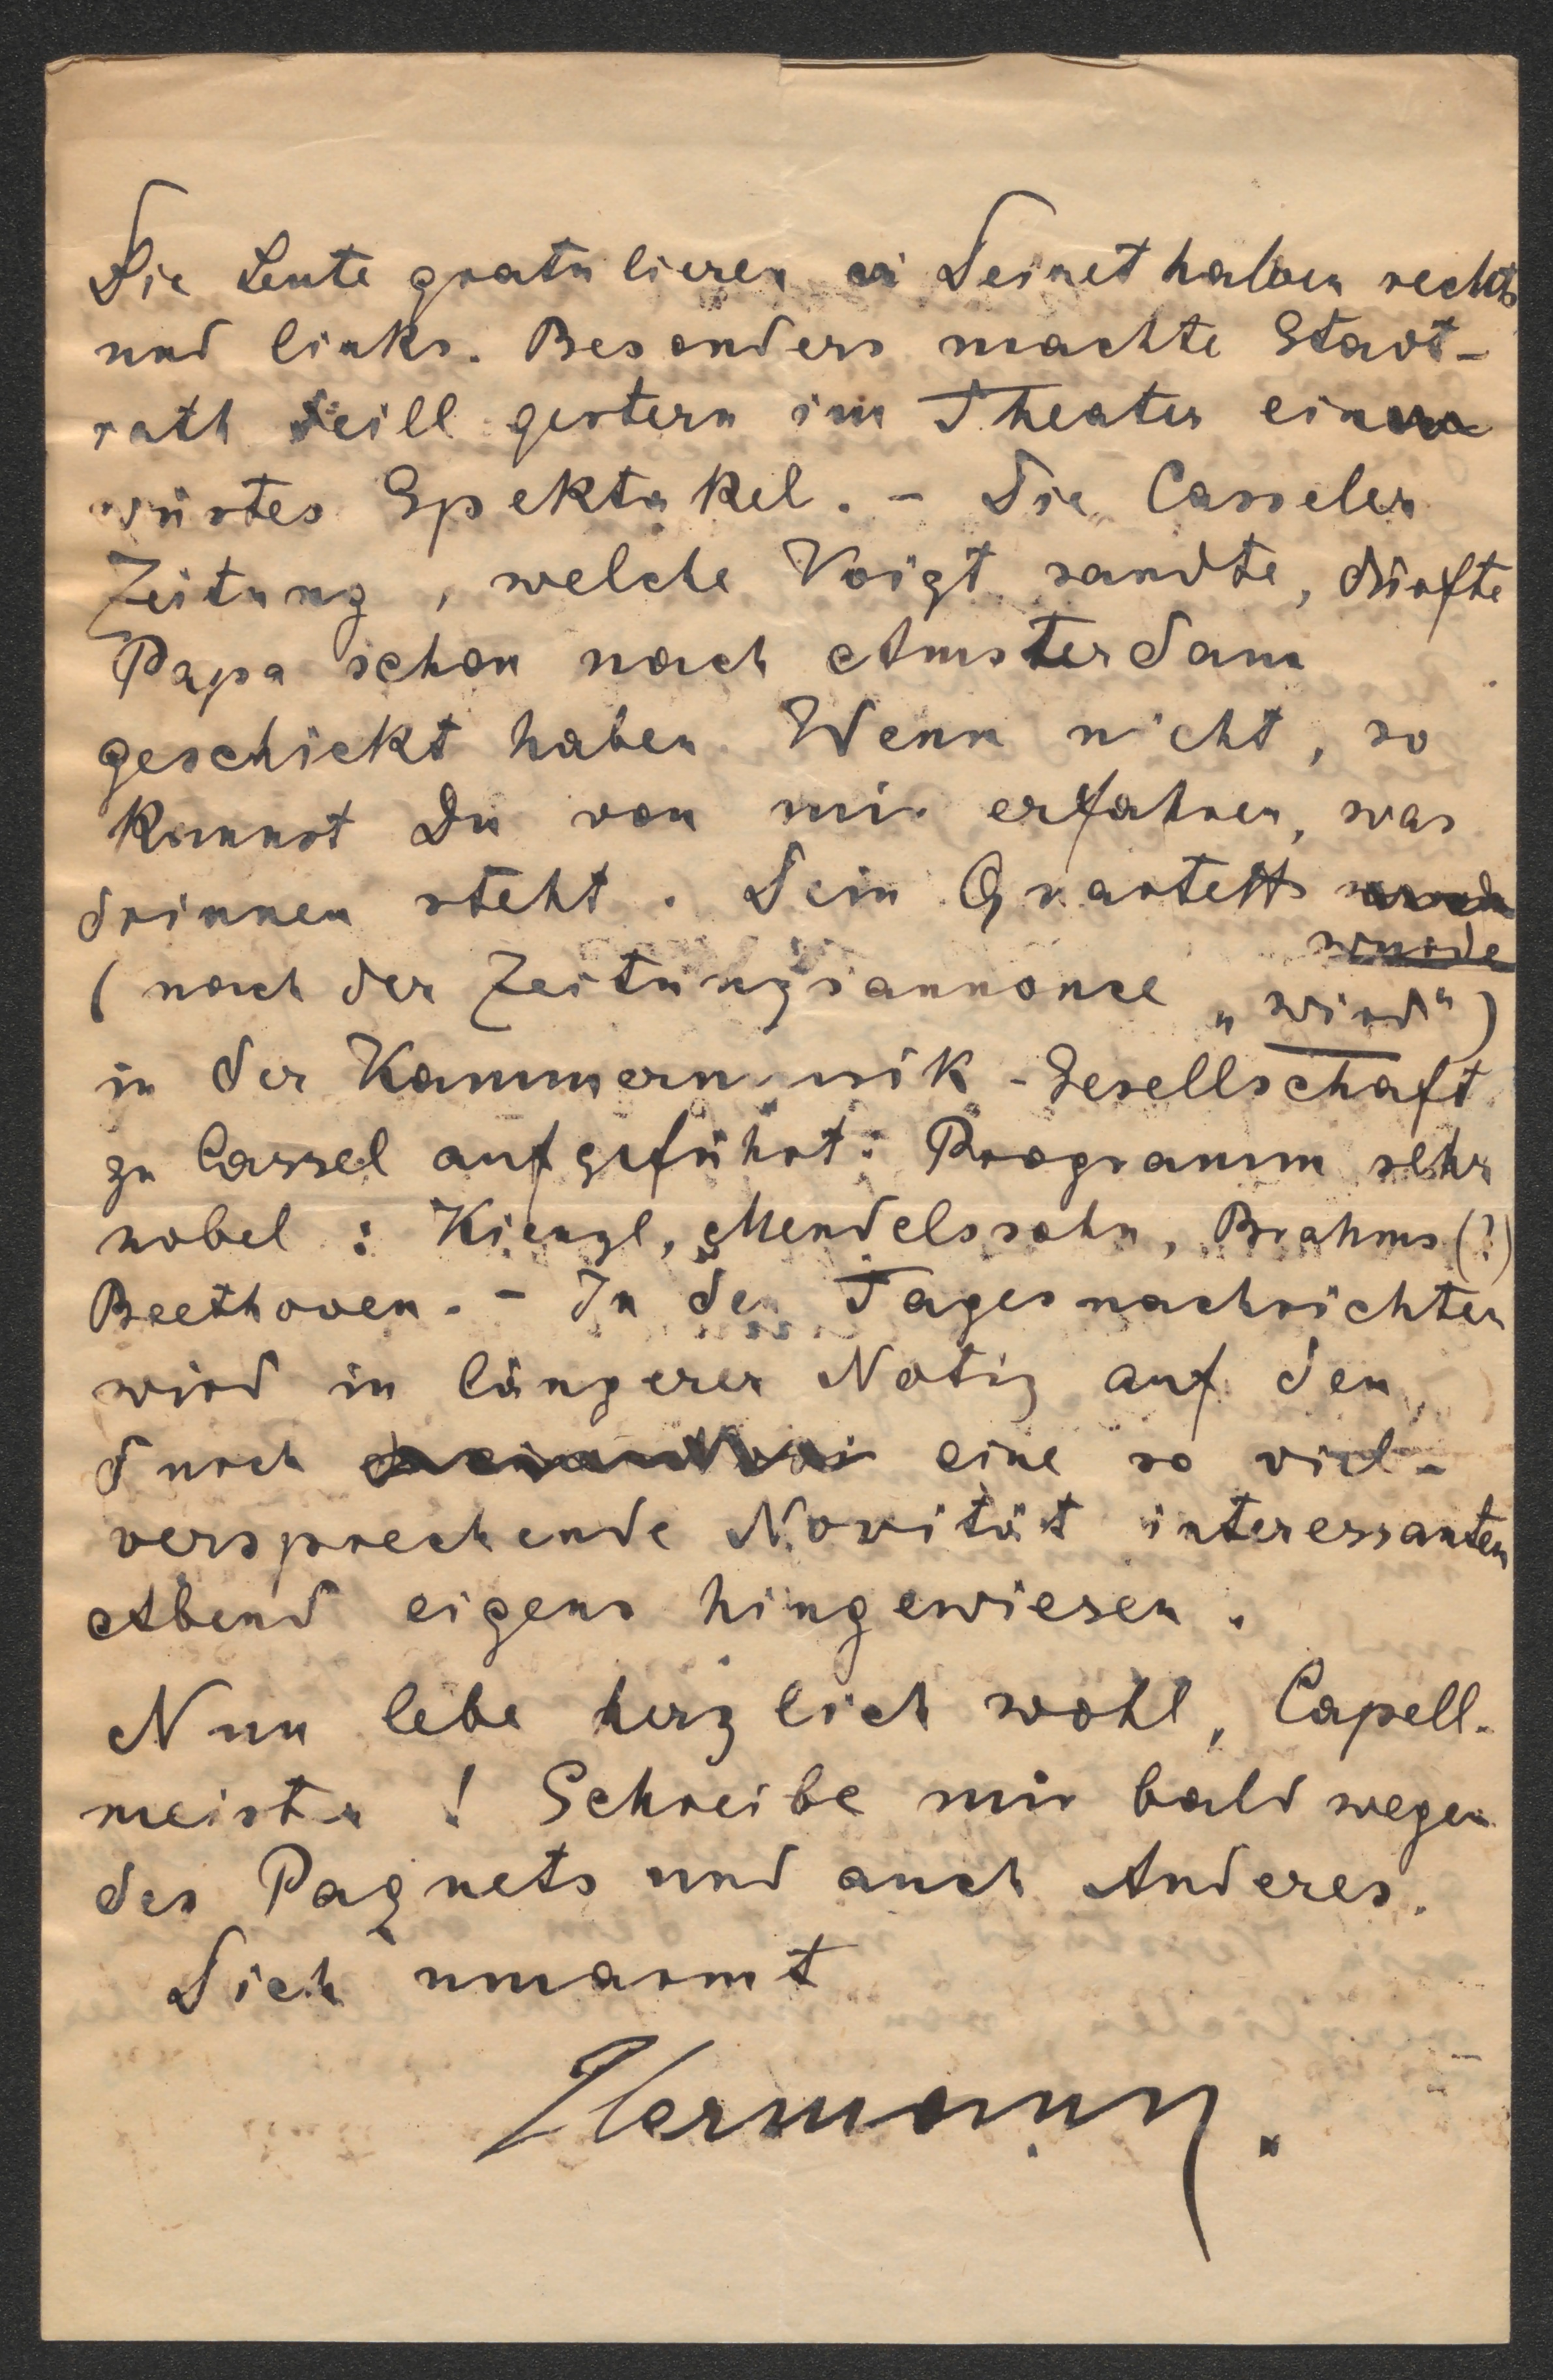 Die Leute gratulieren Deinethalben rechts
und links. Besonders machte Stadt-
rath Feill gestern im Theater ein
wüstes Spektakel. - Die Casseler
Zeitung, welche Voigt sandte, dürfte
Papa schon nach Amsterdam
geschickt haben. Wenn nicht, so
kannst Du von mir erfahren, was
drinnen steht. Dein Quartett
wurde
(nach der Zeitungsannonce „wird")
in der Kammermusik-Gesellschaft
zu Cassel aufgeführt. Programm sehr
nobel: Kienzl, Mendelssohn, Brahms (?)
Beethoven. - In den Tagesnachrichten
wird in längerer Notiz auf den,
durch eine so viel-
versprechende Novität interessanten
Abend eigens hingewiesen.
Nun lebe herzlich wohl, Capell-
meister! Schreibe mir bald wegen
des Paquets und auch Anderes.
Dich umarmt
Hermann.